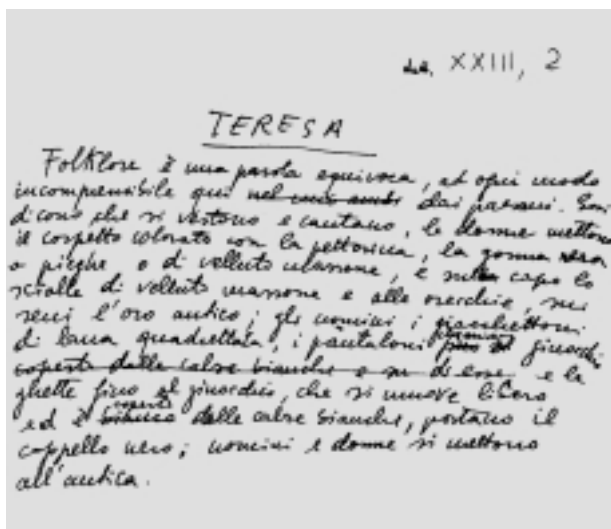 XXIII, 2
TERESA
Folklore è una parola equivoca, ad ogni modo
incomprensibile qui nel mio dai paesani. Essi
dicono che si vestono e cantano, le donne mettono
il corpetto colorato con la pettorina, la gonna nera
a pieghe o di velluto marrone, e sul capo lo
scialle di velluto marrone e alle orecchie, sui
seni l'oro antico; gli uomini i giacchettoni
di lana quadrettata, i pantaloni fino al ginocchio
coperto dalle calze bianche o su di esse e le
ghette fino al ginocchio, che si muove libero
ed è bianco coperto dalle calze bianche, portano il
cappello nero; uomini e donne si mettono
all'antica.